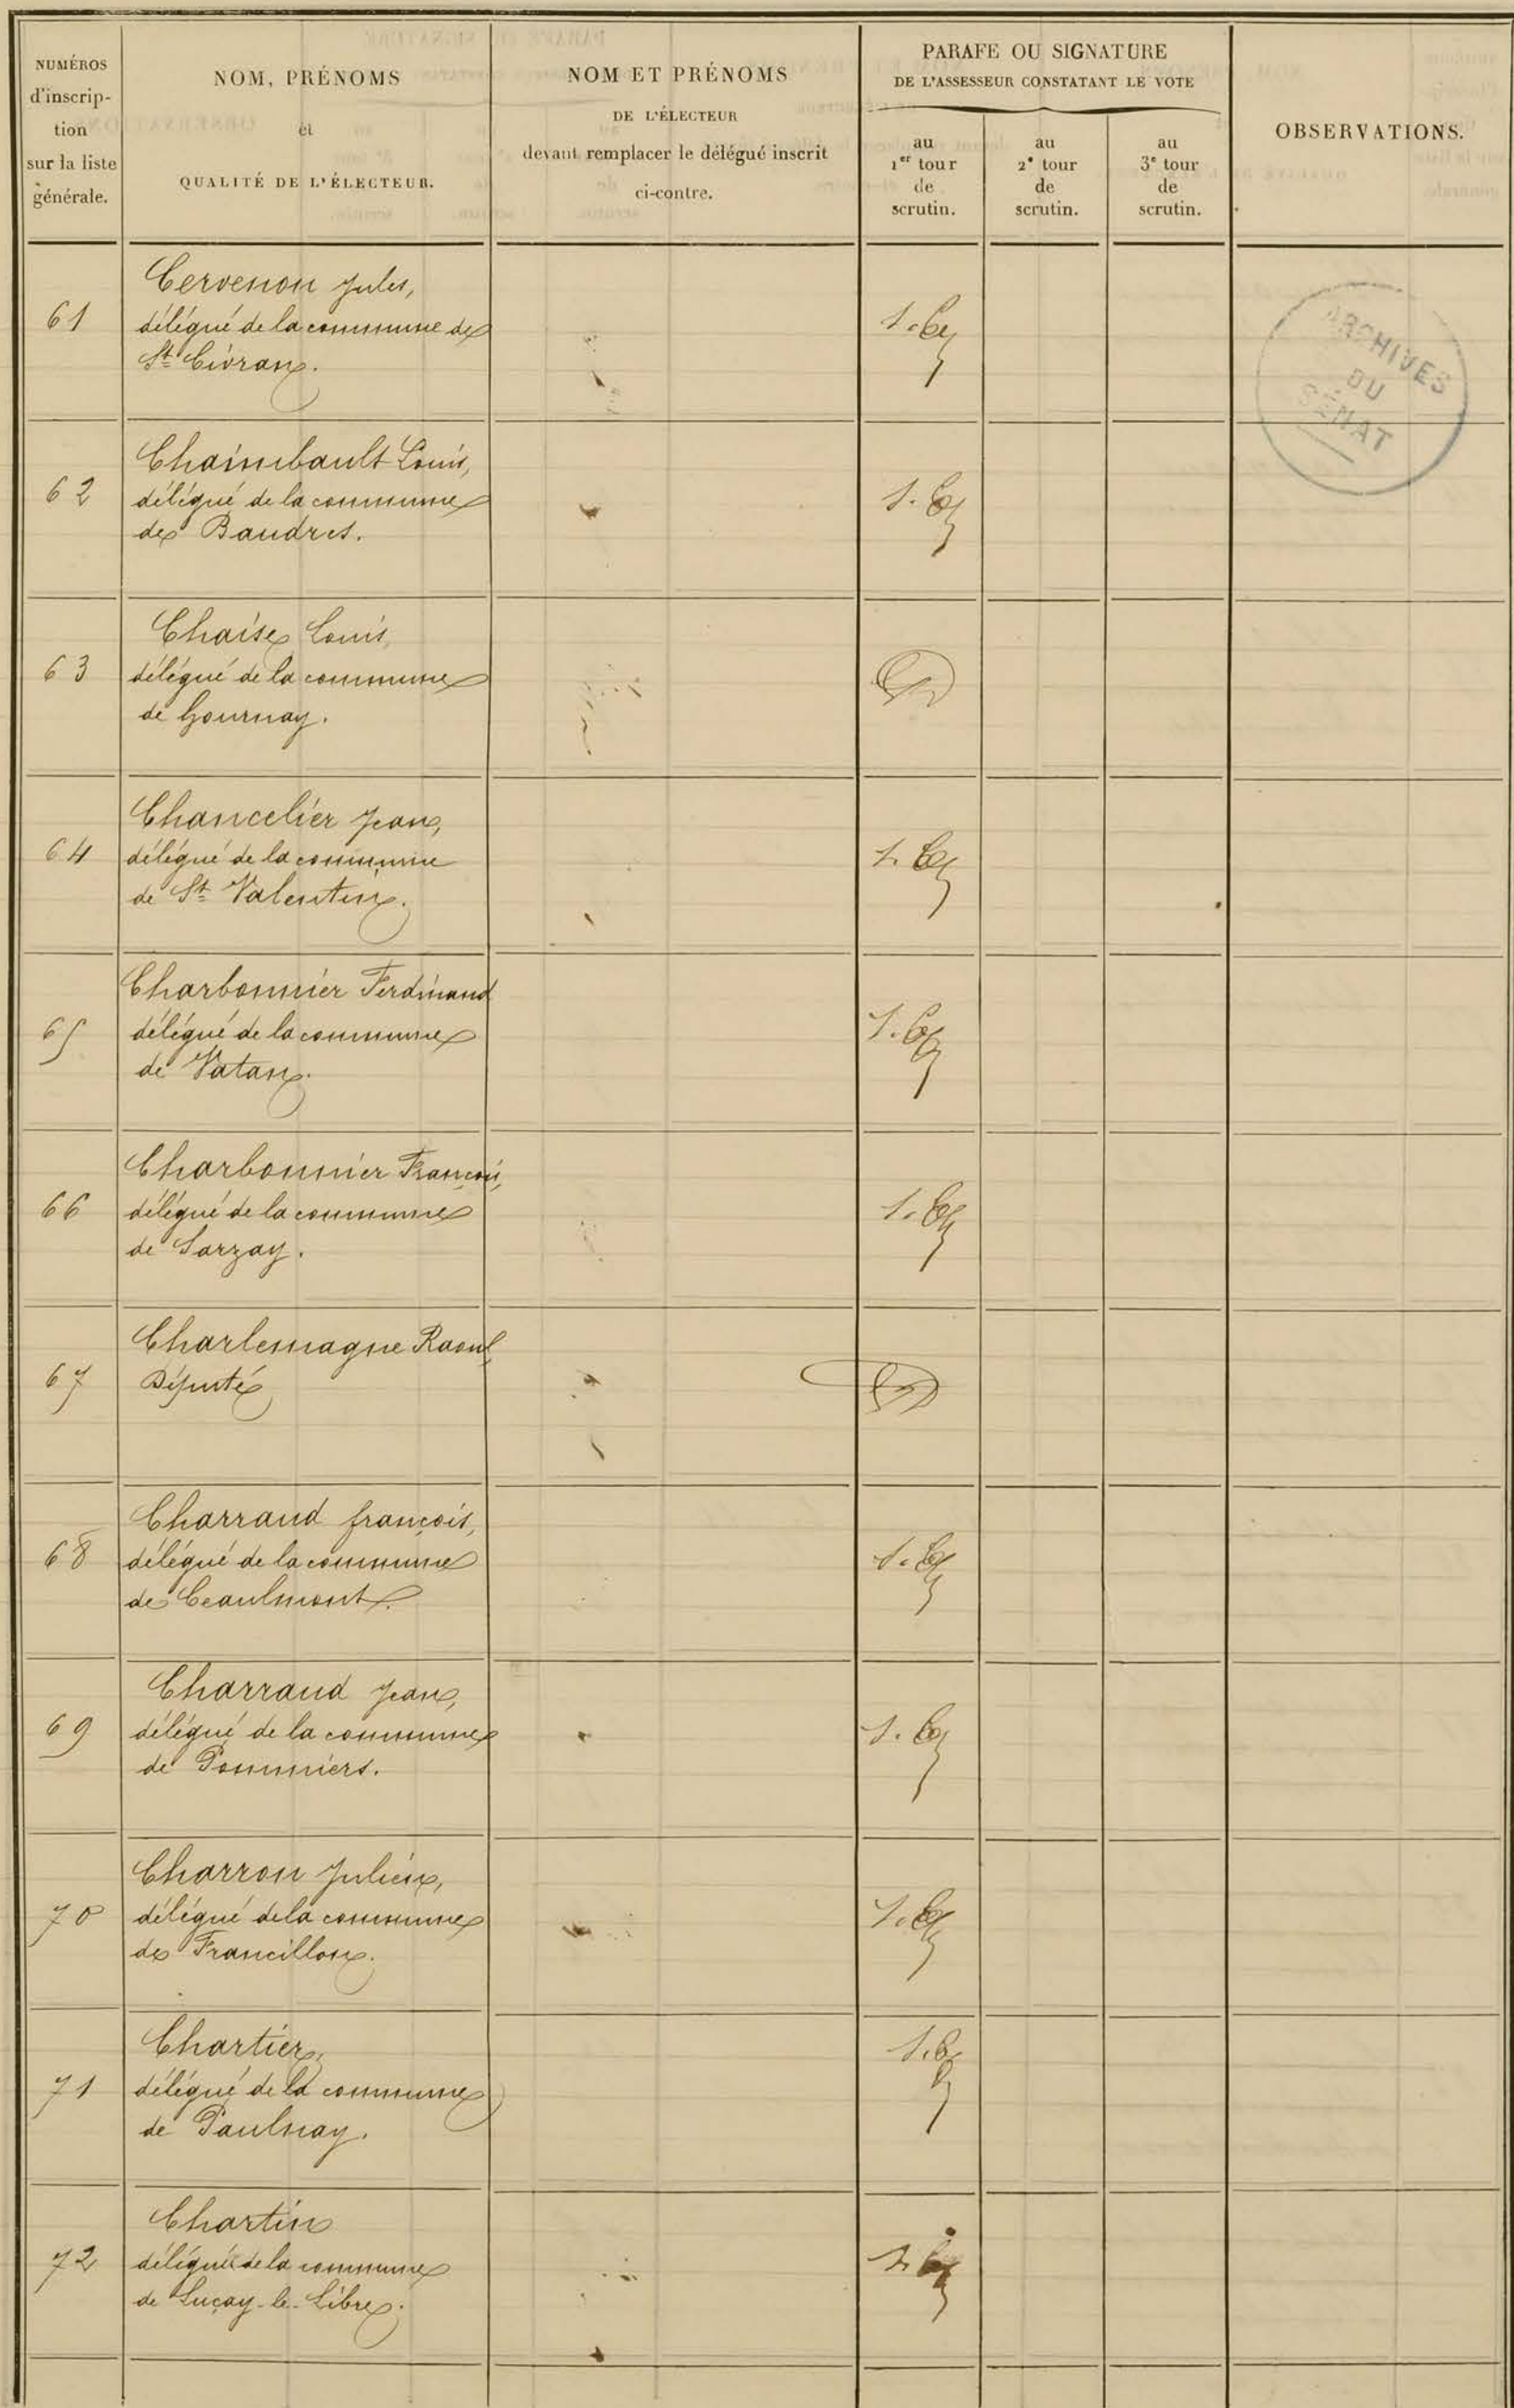 NUMÉROS
d'inscrip-
tion
sur la liste
générale.
NOM, PRÉNOMS
et
QUALITÉ DE L'ÉLECTEUR.
NOM ET PRÉNOMS
DE L'ÉLECTEUR
devant remplacer le délégué inscrit
ci-contre.
PARAFE OU SIGNATURE
DE L'ASSESSEUR CONSTATANT LE VOTE
au
1er tour
de
scrutin.
au
2e tour
de
scrutin.
au
3e tour
de
scrutin.
OBSERVATIONS.
ARCHIVES
DU
SÉNAT
Cervenon Jules,
61 délégué de la commune de
St Civran.
Chaimbault Louis,
62 délégué de la commune
de Baudres.
Chaise Louis,
63 délégué de la commune
de Gournay.
Chancelier Jean,
64 délégué de la commune
de St Valentin.
Charbonnier Ferdinand
65 délégué de la commune
de Vatan.
Charbonnier François,
66 délégué de la commune
de Sarzay.
Charlemagne Raoul,
67 Député
Charraud françois,
68 délégué de la commune
de Ceaulmont.
Charraud Jean,
69 délégué de la commune
de Pommiers.
Charron Julien,
70 délégué de la commune
de Francillon.
Chartier,
71 délégué de la commune
de Paulnay.
Chartin
72 délégué de la commune
de Luçay-le-Libre.